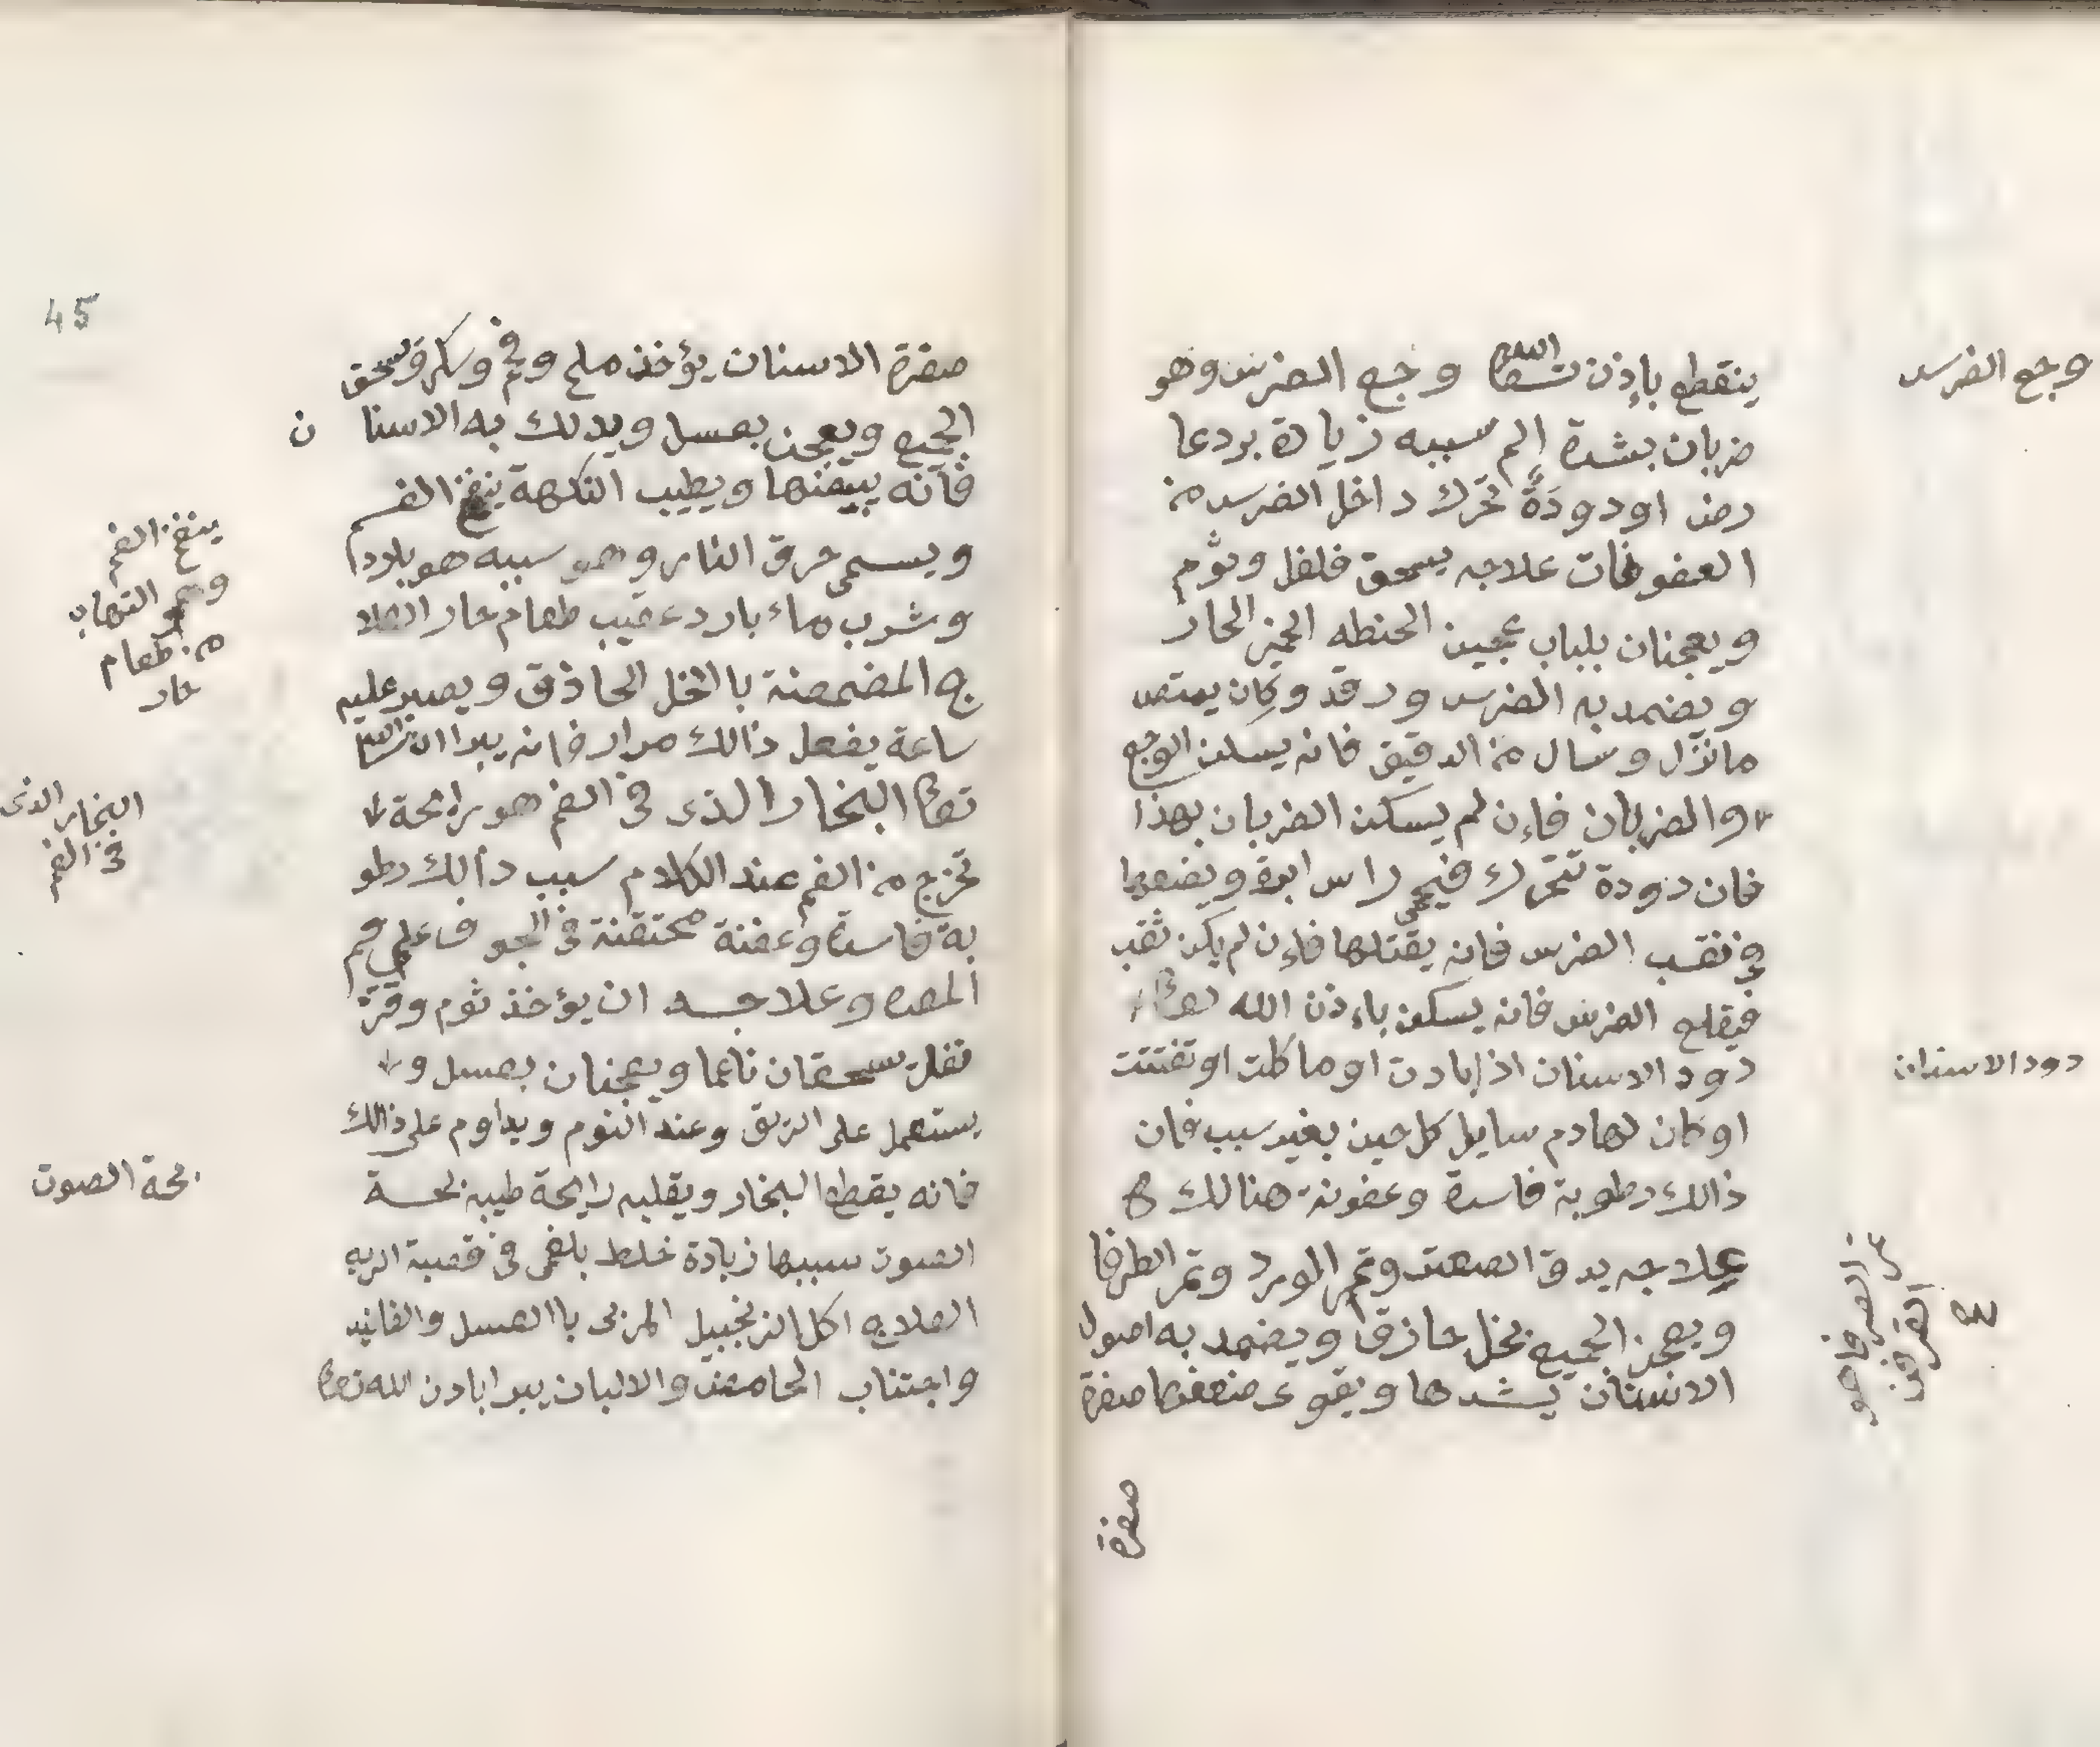 وجع الضرس
ينقطع بإذن الله تعا وجع الضرس وهو
ضربان بشدة إلم سببه زيادة برد عا
رض او دودَةً تحرك داخل الضرس من
العفوفات علاجه يسحق فلفل وثوم
ويعجنان بلباب عجين الحنطه الخمير الحار
ويضمد به الضرس ورقد وكان يمتص
ما نزل وسال من الدقيق فانه يسكن الوجع
والضربان فاءن لم يسكن الضربان بهذا
فان دودة تتحرك فيحمى راس ابرة ويضعها
في نقب الضرس فانه يقتلها فاءن لم يكن نقب
فيقلع الضرس فانه يسكن باءذن الله تعا
دود الاسنان
دود الاسنان اذا بادت او ماكلت او تفتتت
او كان لها دم سايل كل حين بغير سبب فان
ذالك رطوبة فاسدة وعفونة هنالك
علاجه يدق الصعتر وثمر المورد وثمر الطرفا
ويعجن الجميع بخل حازق ويضمد به اصول
الاسنان يشدها ويقوى ضعفها صفرة
صفرة
45
صفرة الاسنان يؤخذ ملح وفحم وسكر ويسحق
الجميع ويعجن بعسل ويدلك به الاسنا ن
فأنه يبيضها ويطيب النكهة ينفخ الفم
ويسمى حرق النار وهو سببه هو بلادا
وشرب ماء بارد عقيب طعام حار العلا
ج المضمضة باالخل الحاذق ويصبر عليه
ساعة يفعل ذالك مرار فانه يبرا ان شا الله
تعا البخار الذى فى الفم هو رايحة
تخرج من الفم عند الكلام سبب دالك رطو
بة فاسدة وعفنة محتقنة فى الجوف على فم
المعده وعلاجه ان يؤخذ ثوم وقر
نفل يسحقان ناعما ويعجنان بعسل و
يستعمل على الريق وعند النوم ويداوم على ذالك
فانه يقطع البخار ويقلبه رايحة طيبه بحة
الصوت سببها زيادة خلط بلغمى فى قصبة الريه
العلاج اكل الزنجبيل المربى باالعسل والفانيد
واجتناب الحامض والالبان يبرا بادن الله تعا
ينفخ الفم
وهو التهاب
من طعام
حار
البخار الذى
فى الفم
بحة الصوت